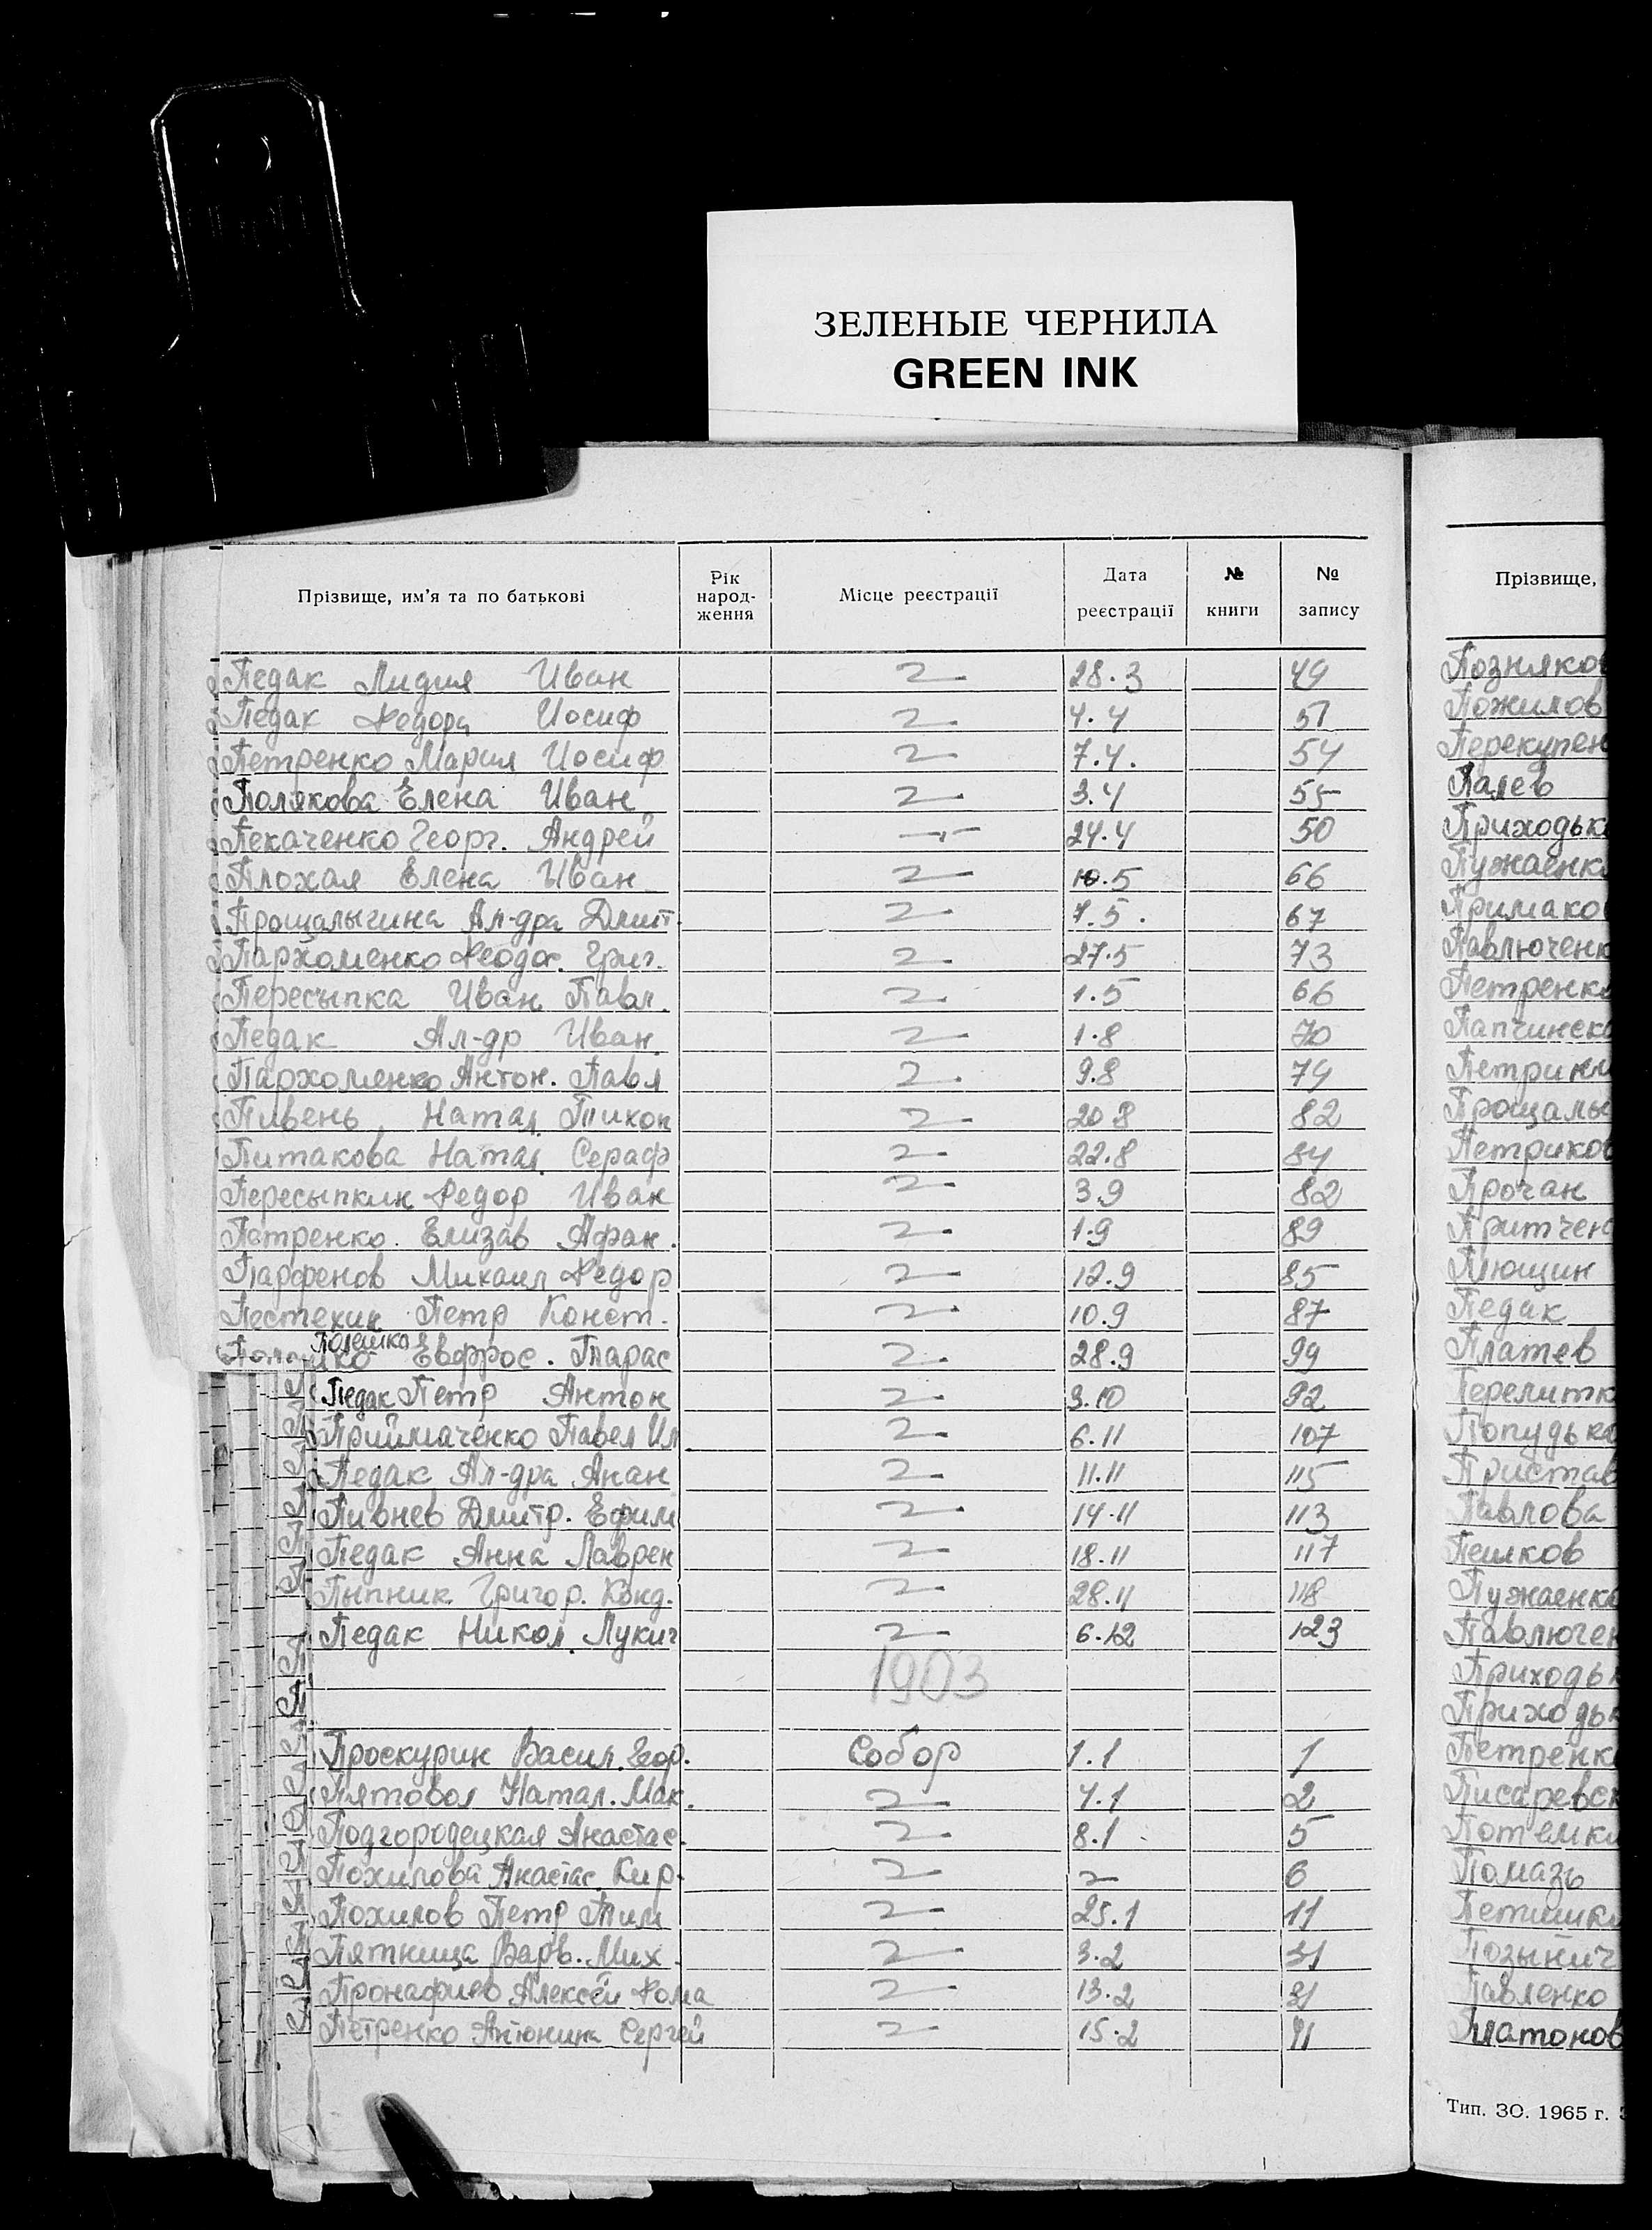 ЗЕЛЕНЫЕ ЧЕРНИЛА
GREEN INK
Прізвище, им'я та по батькові Рік народ- ження Місце реєстрації Дата реєстрації № книги № запису
Педак Лидия Иван 28.3 49
Педак Федора Иосиф 4.4 51
Петренко Мария Иосиф 7.4. 54
Полякова Елена Иван 3.4 55
Георг. Андрей 24.4 50
Плохая Елена Иван 10.5 66
Прощалыгина Ал-дра Дмит. 7.5. 67
Пархоменко Феодос. Григ. 27.5 73
Пересыпка Иван Павл. 1.5 66
Педак Ал-др Иван 1.8 70
Пархоменко Антон. Павл 9.8 74
Пивень Натал. Тихон 20 8 82
Питакова Натал. Сераф 22.8 84
Пересыпкин Федор Иван 3.9 82
Петренко. Елизав Афан. 1.9 89
Парфенов Михаил Федор 12.9 85
Пестехин Петр Конст. 10.9 87
Полешко Евфрос. Тарас 28.9 99
Педак Петр Антон 3.10 92
Прийтаченко Павел Ил 6.11 107
Педак Ал-дра Анан 11.11 115
Пивнев Дмитр. Ефим 14.11 113
Педак Анна Лаврен 18.11 117
Пыпник Григор. Конд. 28.11 118
Педак Никол. Лукич 6.12 123
1903
Проскурин Васил. Геор. Собор 1.1 1
Пятовол Натал. Мак. 4.1 2
Подгородецкая Анастас. 8.1 5
Похилова Анастас. Кир. 6
Похилов Петр Тим 25.1 11
Пятница Варв. Мих. 3.2 31
Алексей Рома 13.2 31
Петренко Антонина Сергей 15.2 41
Прізвище,
Позняков
Пожилов
Перекупен
Палев
Приходьк
Пужаенк
Примако
Павлюченк
Петренк
Папчинско
Петрикн
Прощалы
Петриков
Прочан
Притчен
Плющин
Педак
Платев
Перелитк
Попудько
Пристав
Павлова
Пешков
Пужаенко
Павлючен
Приходьк
Приходьк
Петренк
Писаревск
Потемки
Помазь
Петишки
Позынич
Павленко
Платонов
Тип. ЗО. 1965 г.